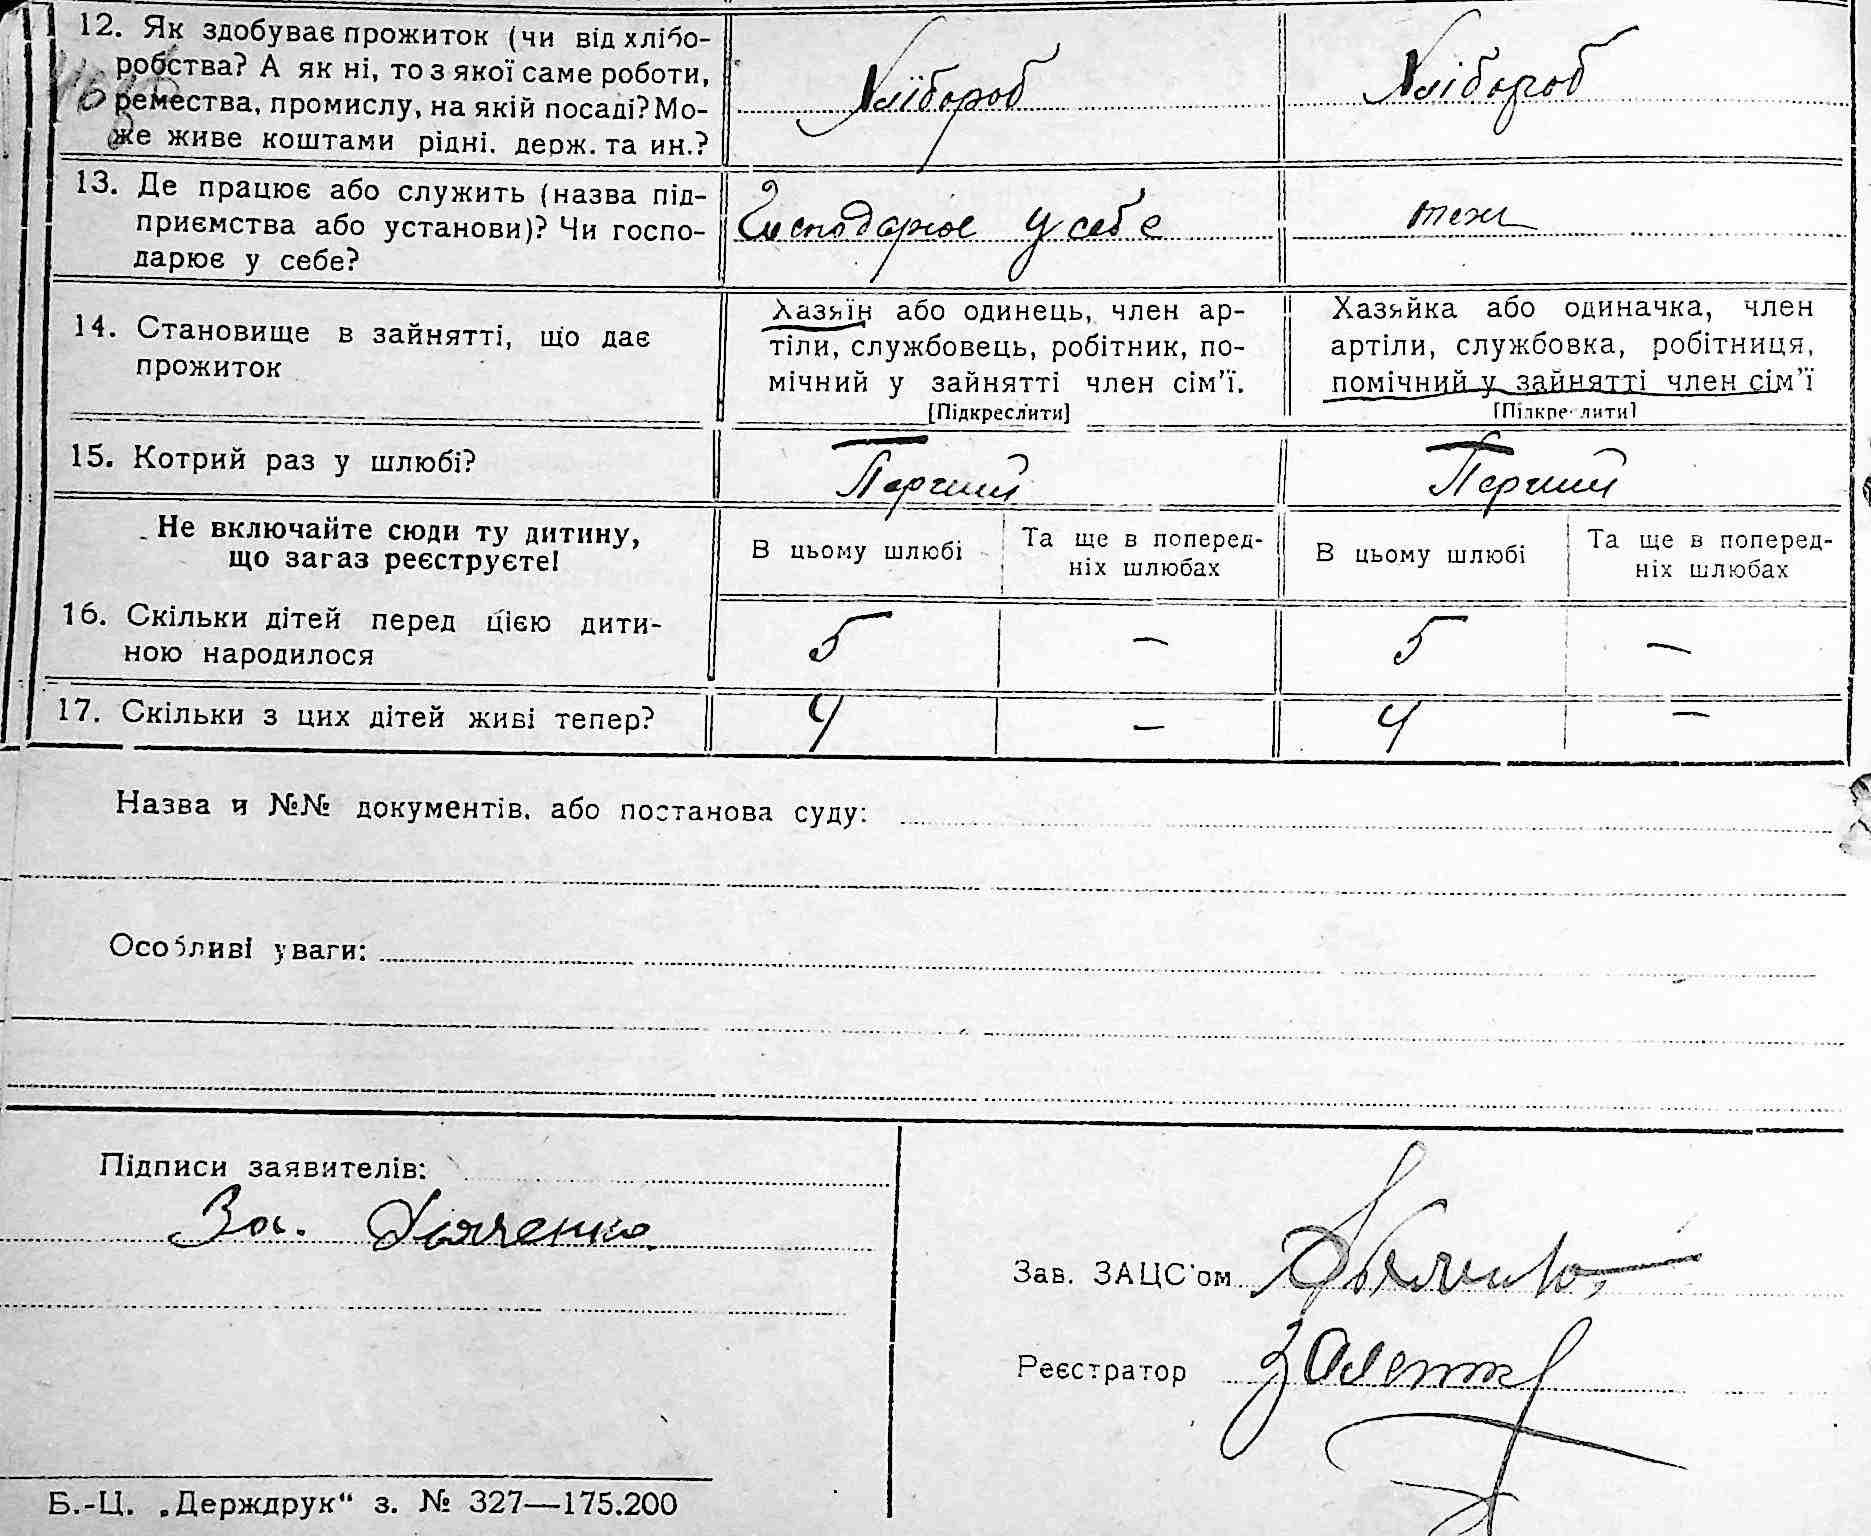 12. Як здобуває прожиток (чи від хлібо-
робства? А як ні, то з якої саме роботи,
ремества, промислу, на якій посаді? Мо-
же живе коштами рідні. держ. та ин.?
Хлібороб
Хлібороб
13. Де працює або служить (назва під-
приємства або установи)? Чи госпо-
дарює у себе?
Господарює у себе
теж
14. Становище в зайнятті, що дає
прожиток
Хазяїн або одинець, член ар-
тіли, службовець, робітник, по-
мічний у зайнятті член сім'ї.
[Підкреслити]
Хазяйка або одиначка, член
артіли, службовка, робітниця,
помічний у зайнятті член сім'ї
[Підкреслити]
15. Котрий раз у шлюбі?
Перший
Перший
Не включайте сюди ту дитину,
що загаз реєструєте!
В цьому шлюбі
Та ще в поперед-
ніх шлюбах
В цьому шлюбі
Та ще в поперед-
ніх шлюбах
16. Скільки дітей перед цією дити-
ною народилося
5 — 5 —
17. Скільки з цих дітей живі тепер?
4 — 4 —
Назва и №№ документів. або постанова суду:
Особливі уваги:
Підписи заявителів:
За. Дяченко
Зав. ЗАЦС'ом
Реєстратор
Б.-Ц. „Держдрук“ з. № 327—175.200